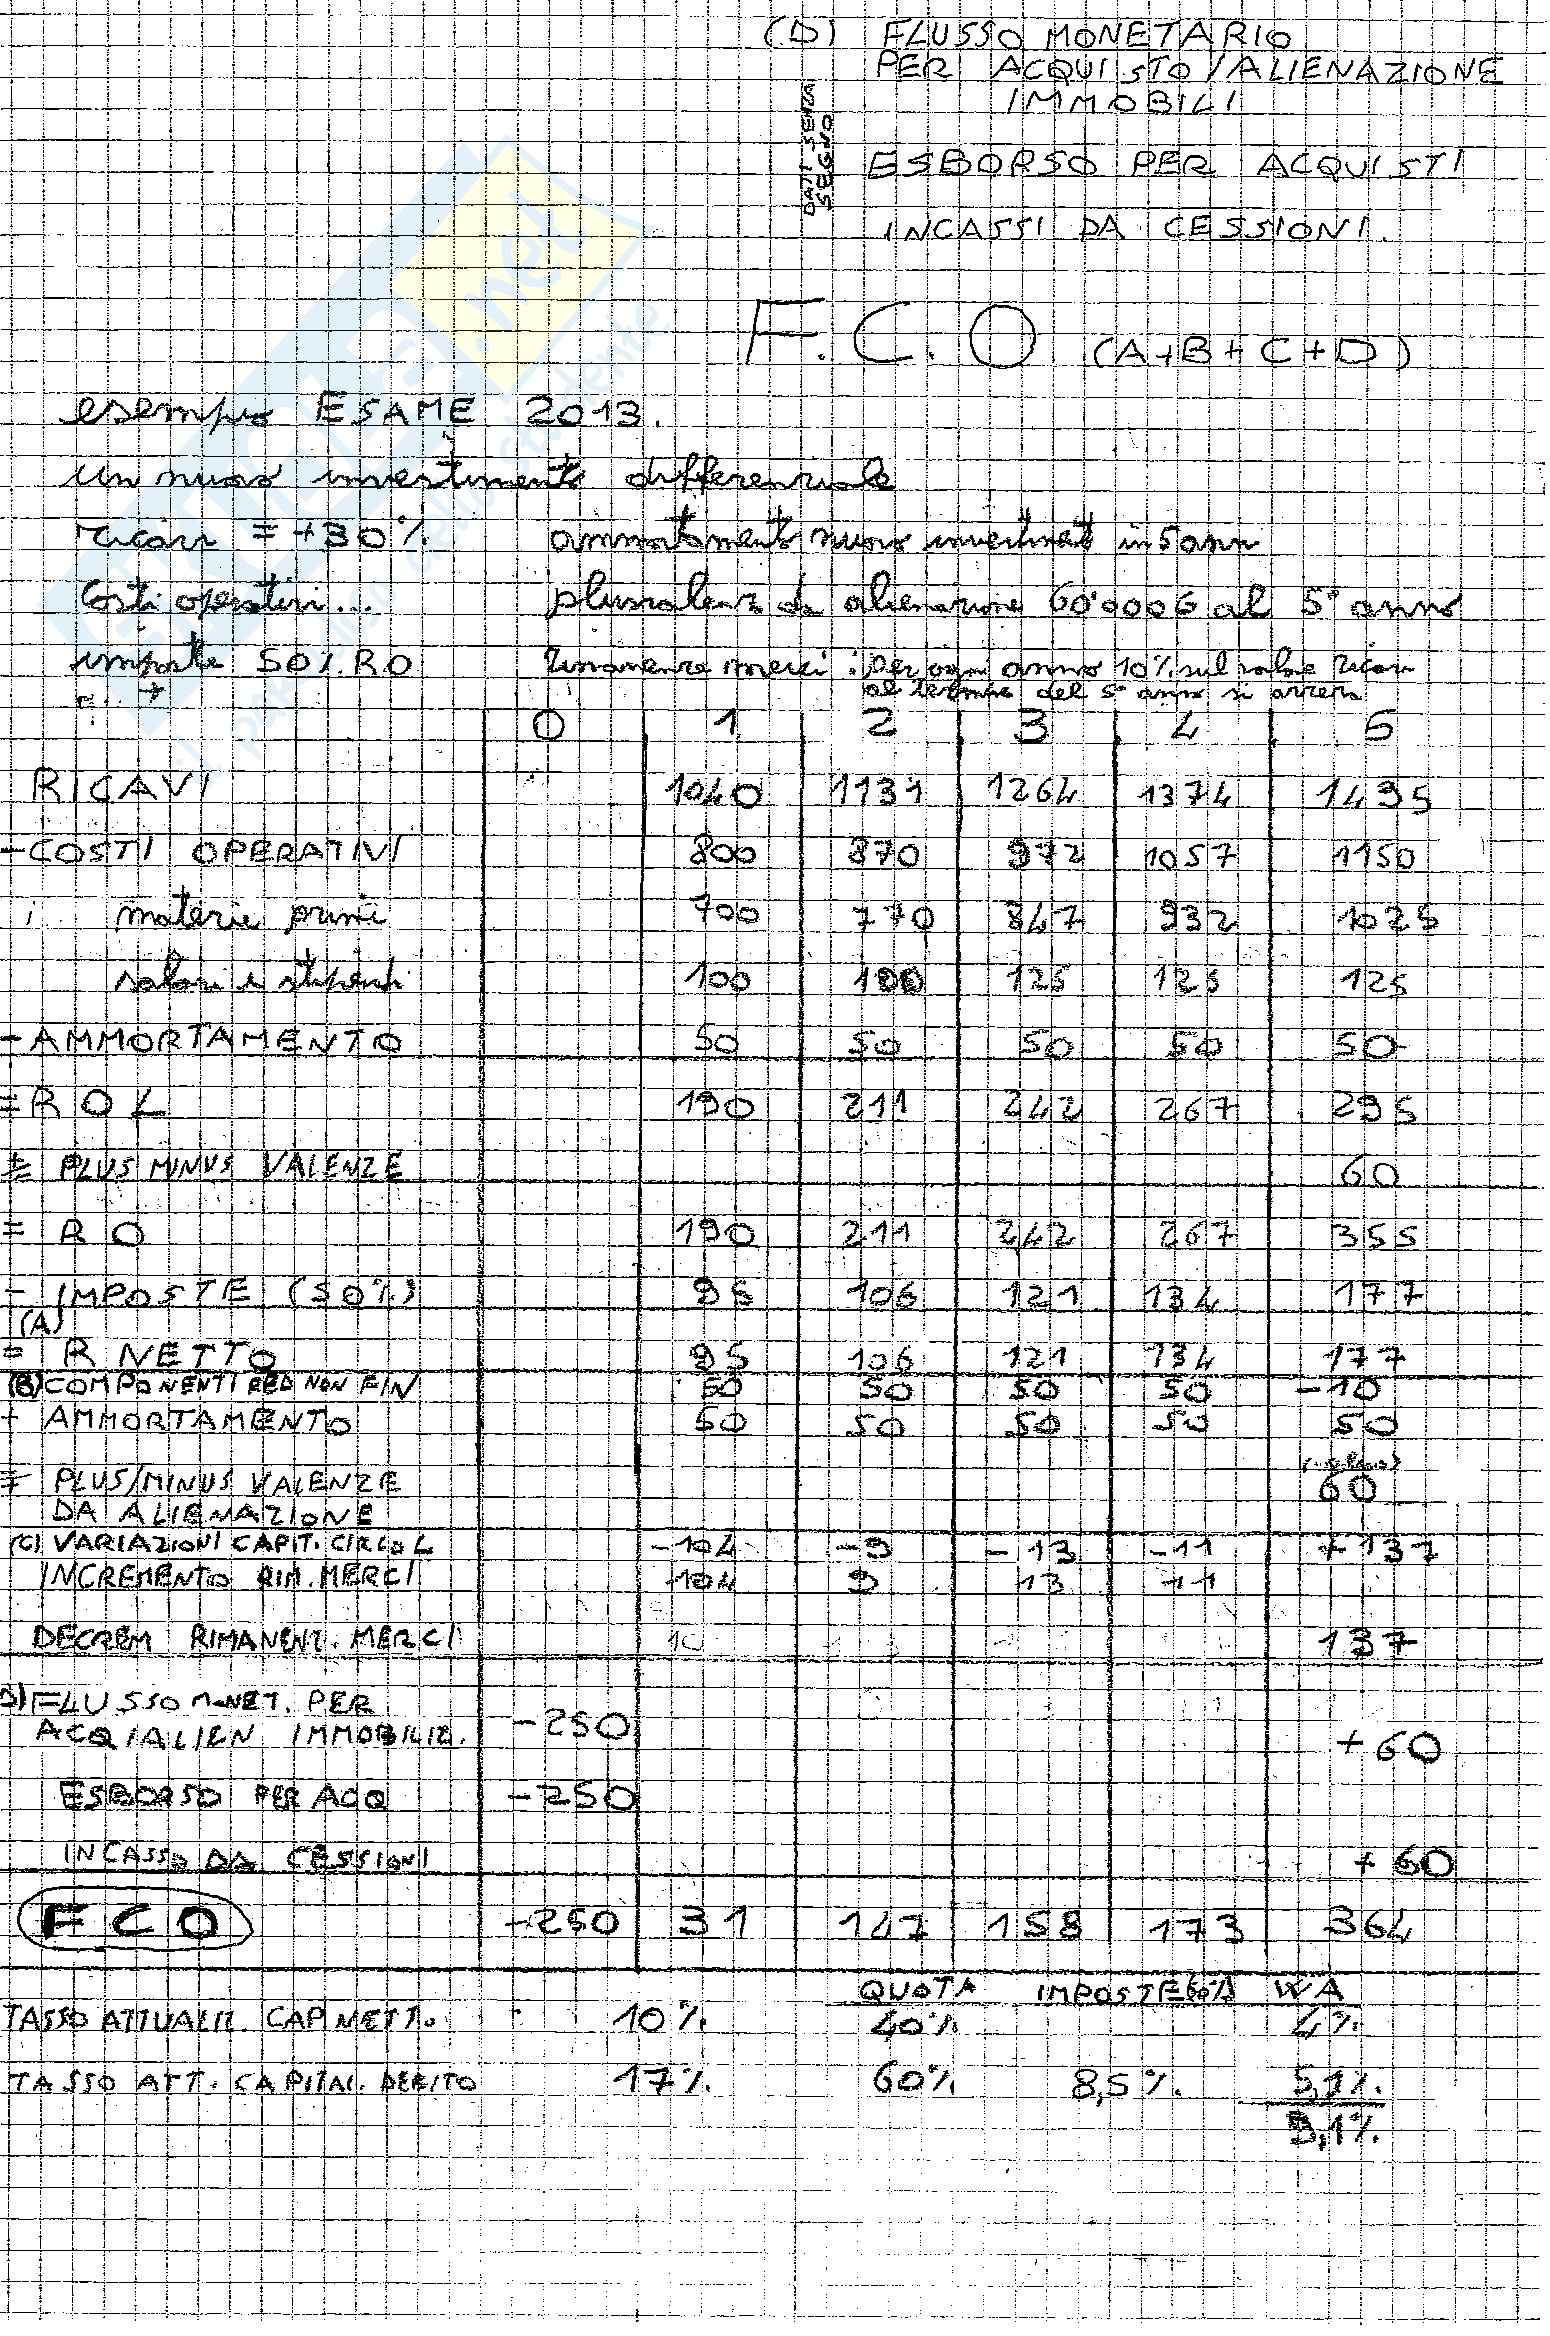 (D) FLUSSO MONETARIO
PER ACQUISTO/ALIENAZIONE
IMMOBILI
DATI SENZA
SEGNO
ESBORSO PER ACQUISTI
INCASSI DA CESSIONI.
F.C.O (A+B+C+D)
esempio ESAME 2013.
un nuovo investimento differenziale
ricavi = +30% ammortamento nuovo investimento in 5 anni
Costi operativi... plusvalenza da alienazione 60'000€ al 5° anno
imposte 50% RO rimanenze merci: per ogni anno 10% sul valore ricavi
al termine del 5° anno si azzera
0 1 2 3 4 5
RICAVI 1040 1131 1264 1374 1495
-COSTI OPERATIVI 800 870 972 1057 1150
materie prime 700 770 847 932 1025
salari e stipendi 100 100 125 125 125
-AMMORTAMENTO 50 50 50 50 50
=ROL 190 211 242 267 295
± PLUS MINUS VALENZE 60
= RO 190 211 242 267 355
- IMPOSTE (50%) 95 106 121 134 177
(A)
= R NETTO 95 106 121 134 177
(B) COMPONENTI RED NON FIN 50 50 50 50 -10
+ AMMORTAMENTO 50 50 50 50 50
∓ PLUS/MINUS VALENZE 60
DA ALIENAZIONE
(C) VARIAZIONI CAPIT. CIRCOL -104 -9 -13 -11 +137
INCREMENTO RIM. MERCI -104 9 13 11
DECREM RIMANENZ. MERCI 10 137
D) FLUSSO MONET. PER
ACQ/ALIEN IMMOBILIZ. -250 +60
ESBORSO PER ACQ -250
INCASSO DA CESSIONI +60
FCO -250 31 147 158 173 364
QUOTA IMPOSTE WA
TASSO ATTUALIZ. CAP NETT. 10% 40% 4%
TASSO ATT. CAPITAL. DEBITO 17% 60% 8,5% 5,1%
9,1%